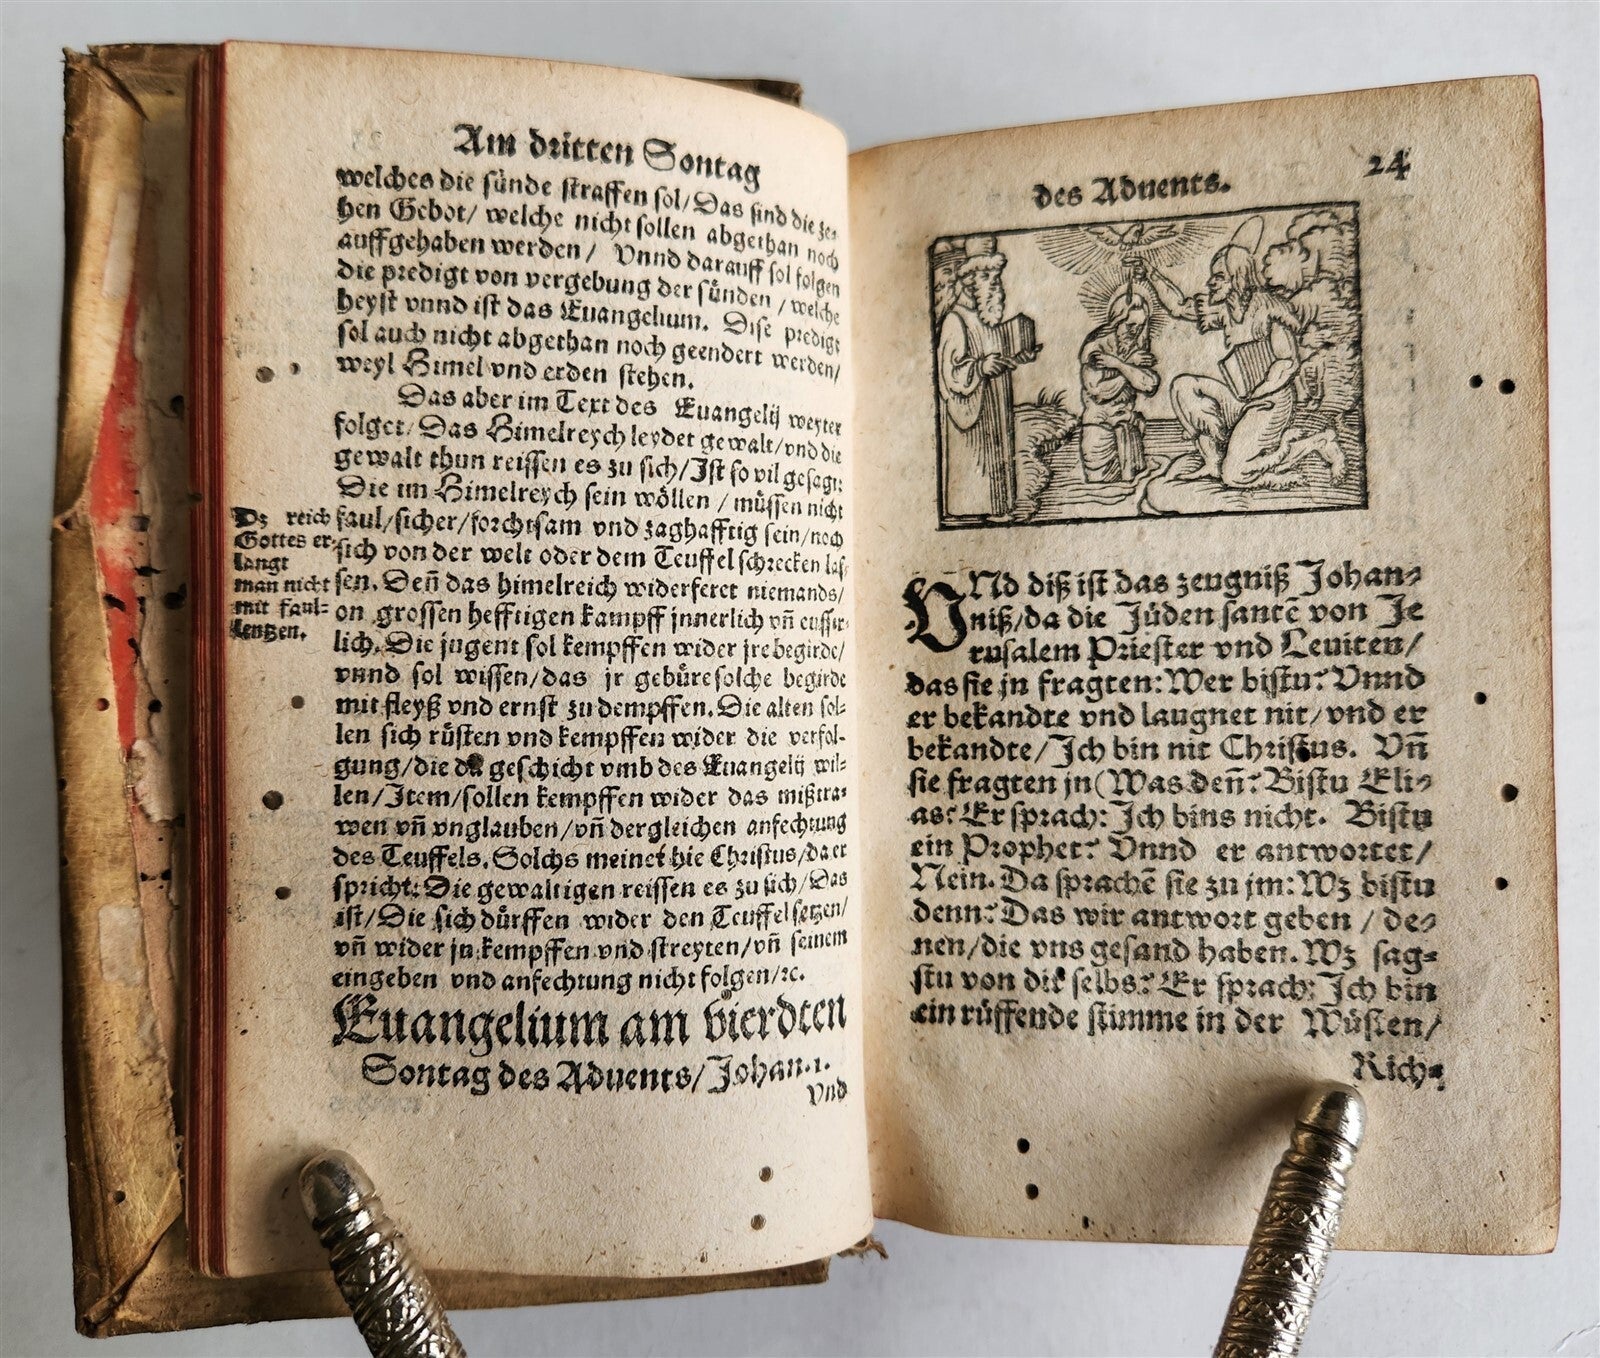 Am dritten Sontag
welches die sünde straffen sol/Das sind die ze-
hen Gebot/ welche nicht sollen abgethan noch
auffgehaben werden/ Vnnd darauff sol folgen
die predigt von vergebung der sünden / welche
heyst vnnd ist das Euangelium. Dise predigt
sol auch nicht abgethan noch geendert werden/
weyl Himel vnd erden stehen.
Das aber im Text des Euangelij weyter
folget/ Das Himelreych leydet gewalt/vnd die
gewalt thun reissen es zu sich/Ist so vil gesagt:
Die im Himelreych sein wöllen / müssen nicht
faul/sicher/forchtsam vnd zaghafftig sein/noch
sich von der welt oder dem Teuffel schrecken las-
sen. Den̄ das himelreich widerferet niemands/
on grossen hefftigen kampff jnnerlich vn̄ eusser-
lich. Die jugent sol kempffen wider jre begirde/
vnnd sol wissen/das jr gebüre solche begirde
mit fleyß vnd ernst zu dempffen. Die alten sol-
len sich rüsten vnd kempffen wider die verfol-
gung/die da geschicht vmb des Euangelij wil-
len/Item/sollen kempffen wider das mißtra-
wen vn̄ vnglauben/vn̄ dergleichen anfechtung
des Teuffels. Solchs meinet hie Christus/da er
spricht: Die gewaltigen reissen es zu sich/Das
ist/Die sich dürffen wider den Teuffel setzen/
vn̄ wider jn kempffen vnd streyten/vn̄ seinem
eingeben vnd anfechtung nicht folgen/ꝛc.
Euangelium am vierdten
Sontag des Aduents/Johan.1.
Vnd
Dz reich
Gottes er-
langt
man nicht
mit faul-
lentzen.
des Aduents.
24
VNd diß ist das zeugniß Johan-
niß/da die Jüden santē von Je
rusalem Priester vnd Leuiten/
das sie jn fragten: Wer bistu? Vnnd
er bekandte vnd laugnet nit/vnd er
bekandte/Ich bin nit Christus. Vn̄
sie fragten jn (Was den̄? Bistu Eli-
as? Er sprach: Ich bins nicht. Bistu
ein Prophet? Vnnd er antwortet/
Nein. Da sprachē sie zu jm: Wz bistu
denn? Das wir antwort geben / de-
nen/die vns gesand haben. Wz sag-
stu von dir selbs? Er sprach: Ich bin
ein rüffende stimme in der Wüsten/
Rich-